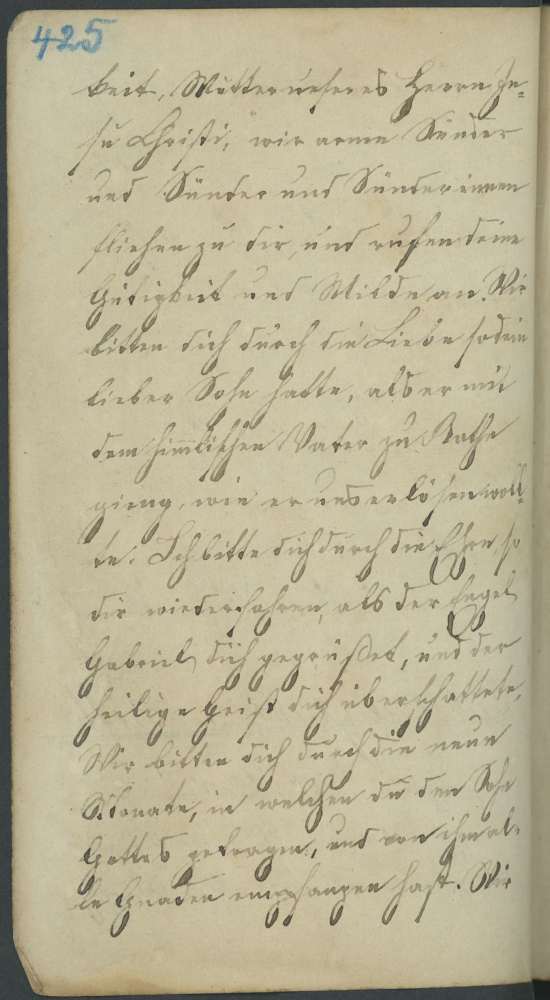 425
keit, Mutter unseres Herrn Je-
su Christi, wir arme Sünder
und Sünder und Sünderinnen
fliehen zu dir, und rufen deine
Gütigkeit und Milde an. Wir
bitten dich durch die Liebe so dein
lieber Sohn hatte, als er mit
dem himlischen Vater zu Rathe
gieng, wie er uns erlösen woll-
te. Ich bitte dich durch die Ehre so
dir wiederfahren, als der Engel
Gabriel dich gegrüßet, und der
heilige Geist dich überschattete,
Wir bitten dich durch die neun
Monate, in welchen du den Sohn
Gottes getragen, und von ihm al-
le Gnaden empfangen hast. Wir